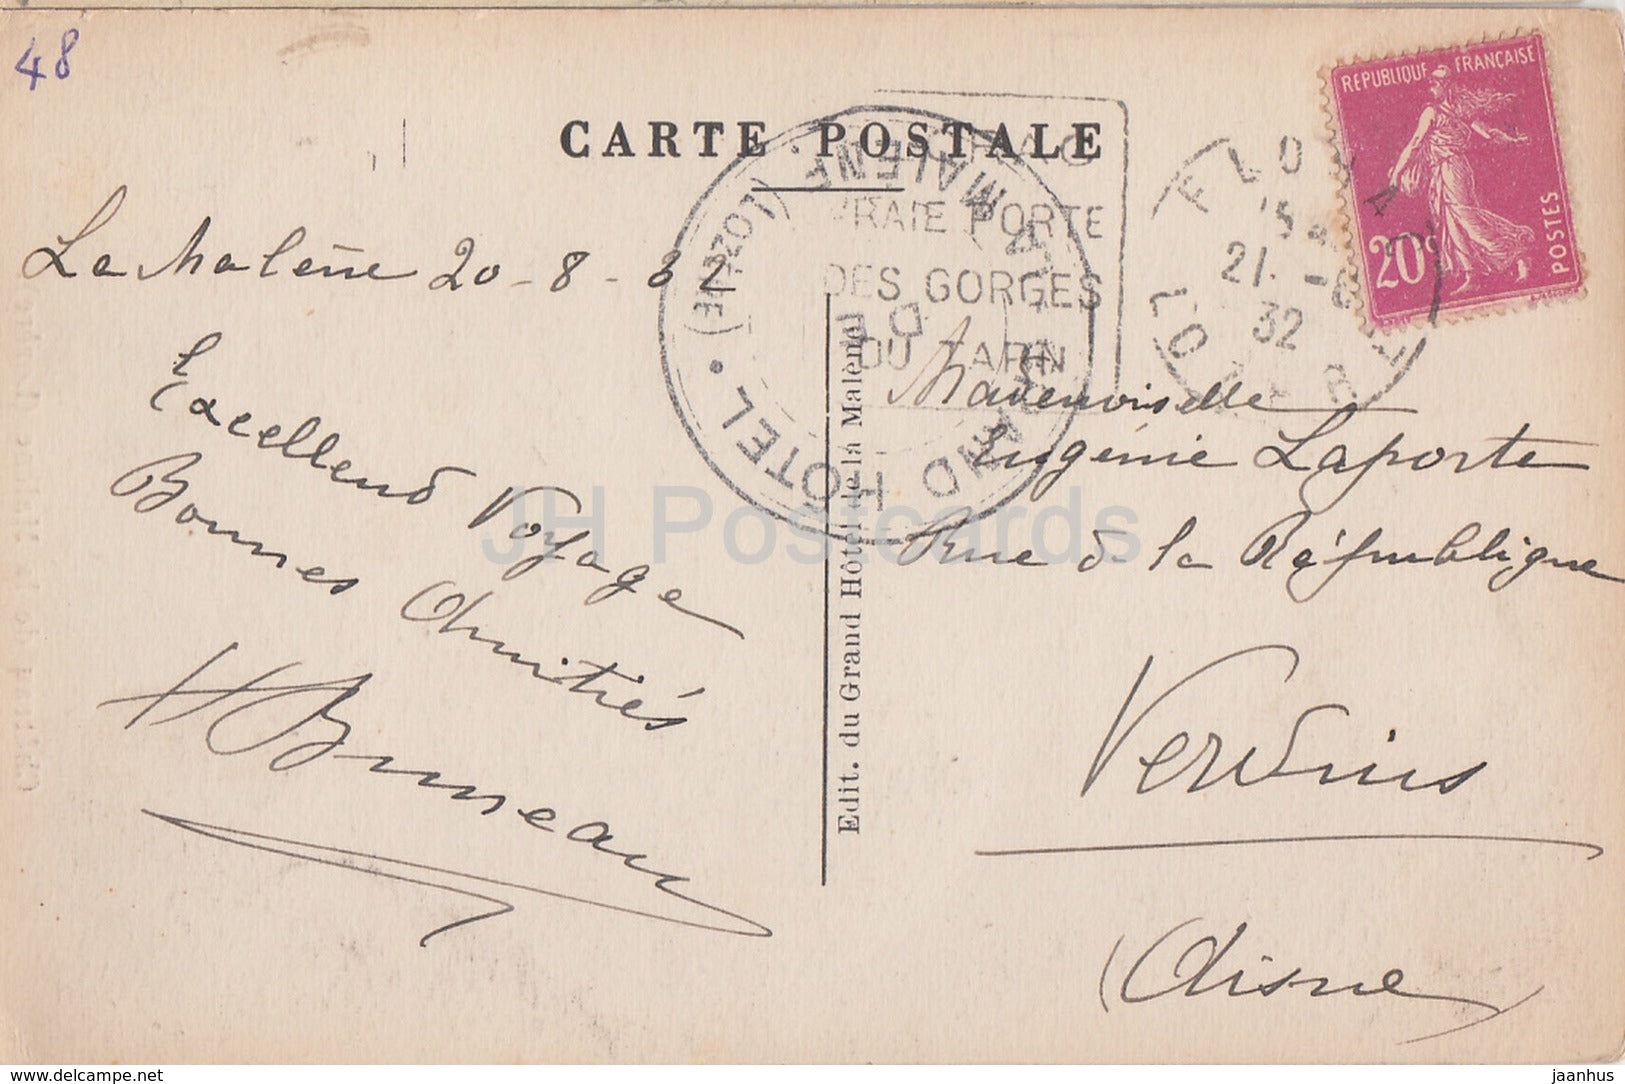 48
CARTE POSTALE
REPUBLIQUE FRANÇAISE
20c
POSTES
FLORAC
21 -8
32
LOZERE
VRAIE PORTE
DES GORGES
DU TARN
GRAND HÔTEL
DE
LA MALÈNE
(LOZÈRE)
La Malène 20-8-32
Excellent Voyage
Bonnes Amitiés
HBruneau
Edit. du Grand Hôtel de la Malène
Mademoiselle
Eugénie Laporte
Rue de la République
Vervins
(Aisne)
JH Postcards
delcampe.net
jaanhus